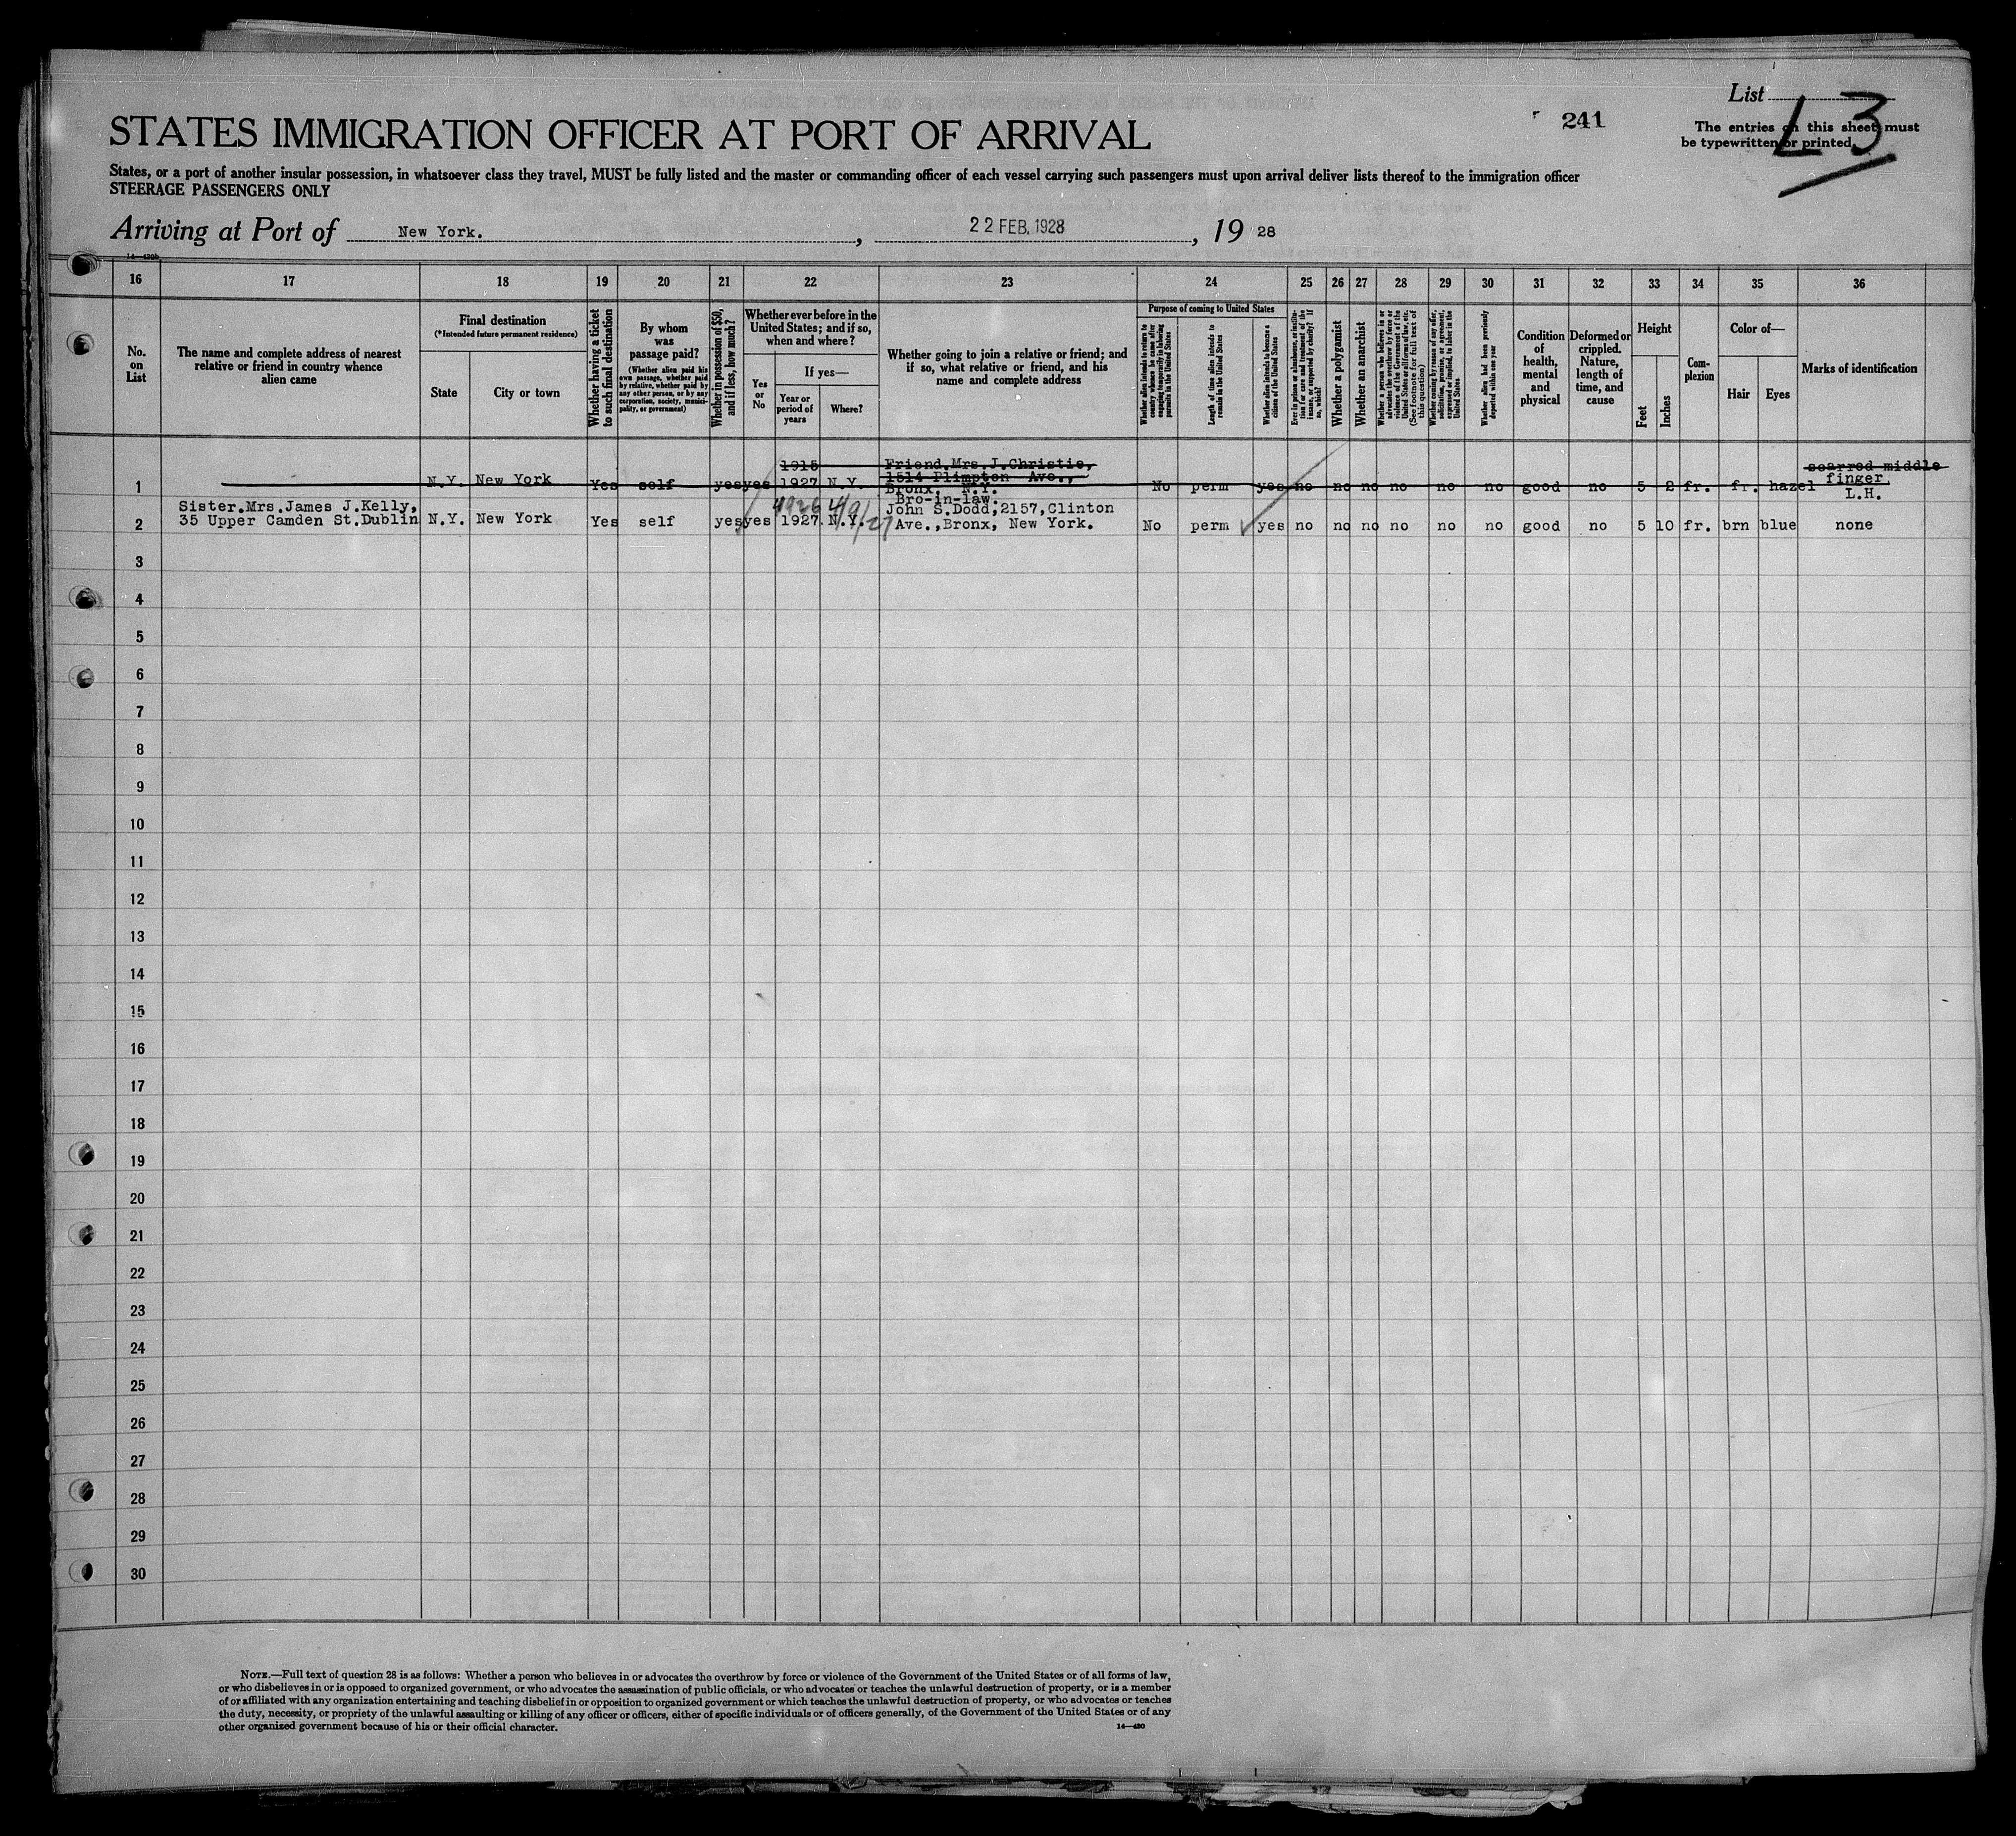 List
241
L 3
The entries on this sheet must
be typewritten or printed.
STATES IMMIGRATION OFFICER AT PORT OF ARRIVAL
States, or a port of another insular possession, in whatsoever class they travel, MUST be fully listed and the master or commanding officer of each vessel carrying such passengers must upon arrival deliver lists thereof to the immigration officer
STEERAGE PASSENGERS ONLY
Arriving at Port of New York. , 22 FEB. 1928 , 19 28
14—430b
16 17 18 19 20 21 22 23 24 25 26 27 28 29 30 31 32 33 34 35 36
No. on List
The name and complete address of nearest relative or friend in country whence alien came
Final destination
(*Intended future permanent residence)
State
City or town
Whether having a ticket to such final destination
By whom was passage paid?
(Whether alien paid his own passage, whether paid by relative, whether paid by any other person, or by any corporation, society, municipality, or government)
Whether in possession of $50, and if less, how much?
Whether ever before in the United States; and if so, when and where?
Yes or No
If yes—
Year or period of years
Where?
Whether going to join a relative or friend; and if so, what relative or friend, and his name and complete address
Purpose of coming to United States
Whether alien intends to return to country whence he came after engaging temporarily in laboring pursuits in the United States
Length of time alien intends to remain in the United States
Whether alien intends to become a citizen of the United States
Ever in prison or almshouse, or institution for care and treatment of the insane, or supported by charity? If so, which?
Whether a polygamist
Whether an anarchist
Whether a person who believes in or advocates the overthrow by force or violence of the Government of the United States or all forms of law, etc. (See footnote for full text of this question)
Whether coming by reason of any offer, solicitation, promise, or agreement, expressed or implied, to labor in the United States
Whether alien had been previously deported within one year
Condition of health, mental and physical
Deformed or crippled. Nature, length of time, and cause
Height
Feet
Inches
Complexion
Color of—
Hair
Eyes
Marks of identification
1915 Friend.Mrs.J.Christie, scarred middle
1514 Plimpton Ave., finger
1 N.Y. New York Yes self yes yes 1927 N.Y. Bronx, N.Y. No perm yes no no no no no no good no 5 2 fr. fr. hazel L.H.
Sister.Mrs.James J.Kelly, Bro-in-law.
John S.Dodd,2157,Clinton
2 35 Upper Camden St.Dublin N.Y. New York Yes self yes yes 1927. N.Y. Ave.,Bronx, New York. No perm yes no no no no no no good no 5 10 fr. brn blue none
3
4
5
6
7
8
9
10
11
12
13
14
15
16
17
18
19
20
21
22
23
24
25
26
27
28
29
30
NOTE.—Full text of question 28 is as follows: Whether a person who believes in or advocates the overthrow by force or violence of the Government of the United States or of all forms of law,
or who disbelieves in or is opposed to organized government, or who advocates the assassination of public officials, or who advocates or teaches the unlawful destruction of property, or is a member
of or affiliated with any organization entertaining and teaching disbelief in or opposition to organized government or which teaches the unlawful destruction of property, or who advocates or teaches
the duty, necessity, or propriety of the unlawful assaulting or killing of any officer or officers, either of specific individuals or of officers generally, of the Government of the United States or of any
other organized government because of his or their official character.
14—430